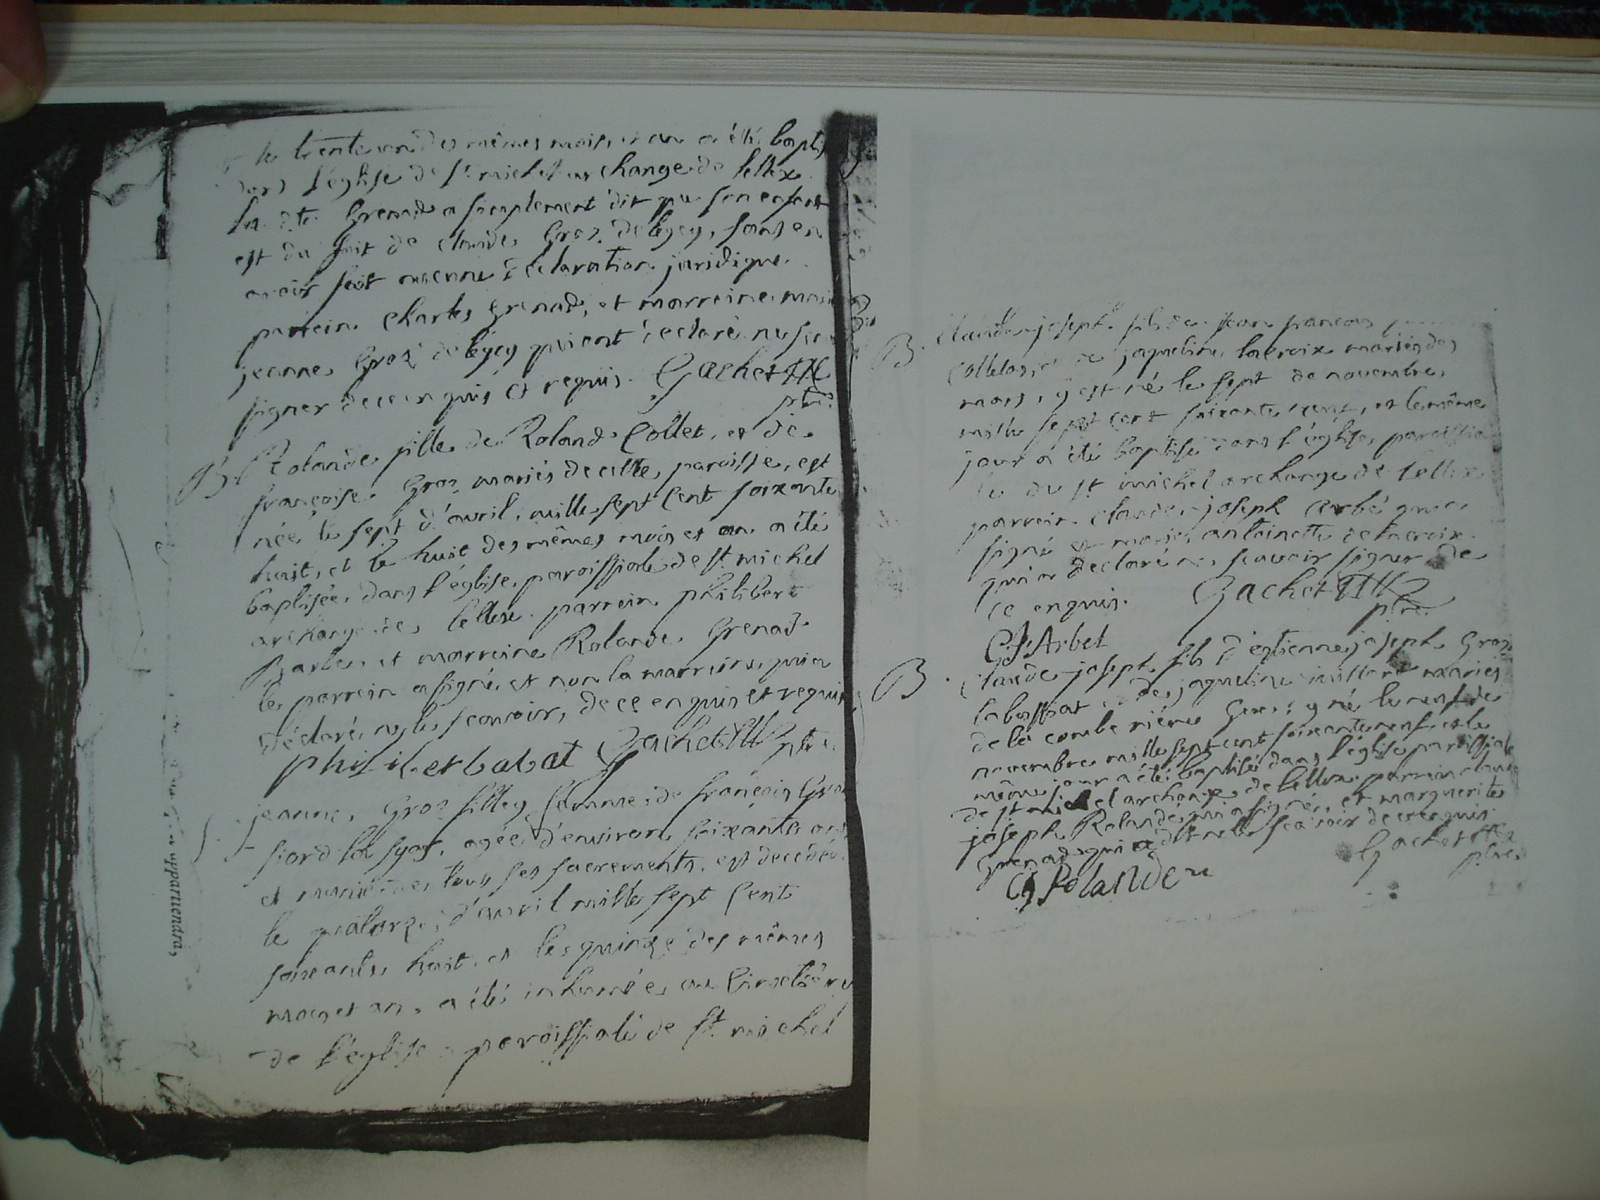 le trente un des mêmes mois et an a été bapti
dans l'église de st michel archange de lellex
la dte Grenad a simplement dit que son enfant
est du fait de claude Groz de lyey, sans en
avoir fait aucune déclaration juridique.
parrein Charles Grenad, et marreine marie
jeanne Groz de lyey qui ont déclaré ne scav
signer de ce enquis et requis. Gachet
ptre
B. Rolande fille de Roland Collet, et de
françoise Groz mariés de cette paroisse, est
née le sept d'avril, mille sept cent soixante
huit, et le huit des mêmes mois et an a été
baptisée dans l'église paroissiale de st michel
archange de lellex. parrein philibert
Barbe, et marreine Rolande Grenad
le parrein a signé et non la marreine qui a
déclaré ne le scavoir, de ce enquis et requis
philiber Gachet ptre
S. jeanne Groz femme de françois Groz
agée d'environ soixante ans
et munie de tous ses sacrements, est decedée
le quatorze d'avril mille sept cent
soixante huit, et le quinze des mêmes
mois et an, a été inhumée au cimetière
de l'église paroissiale de st michel
B. Claude joseph fils de jean francois
Colletaz, et de jaqueline lacroix mariés des
mars, y est né le sept de novembre,
mille sept cent soixante neuf, et le même
jour a été baptisé dans l'église paroissia
le du st michel archange de lellex
parrein claude joseph qui a
signé et marie antoinette delacroix
qui a declaré ne scavoir signer de
ce enquis. Gachet
ptre
C J Arbet
B. Claude joseph fils d'estienne joseph Groz
et de jaqueline mariés
de la combe y né le neuf de
novembre mille sept cent soixante neuf, et le
même jour a été baptisé dans l'église paroissiale
de st michel archange de lellex parrein claude
joseph Rolande qui a signé, et marguerite
Grenad qui a dit ne le scavoir de ce enquis
Gachet
ptre
C J Rolande
appartiendrais